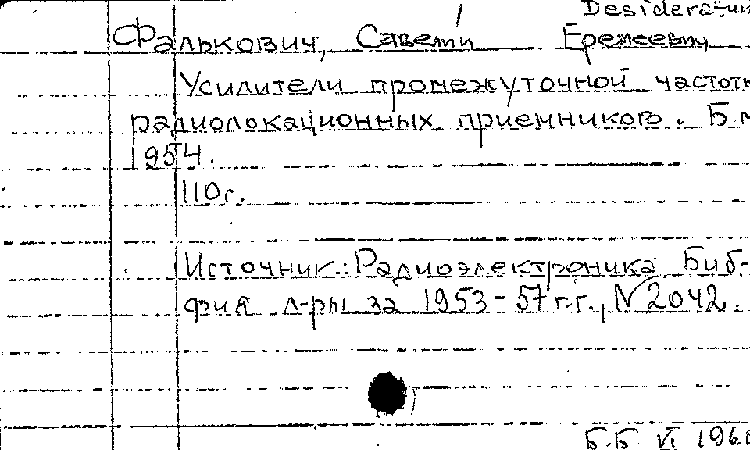 Desiderat
Фалькович, Савелий Еремеевич
Усилители промежуточной частот
радиолокационных приемников. Б.м
1954.
110г.
Источник: Радиоэлектроника Биб-
фия л-ры за 1953-57 г.г., N 2042.
Б.Б VI 196